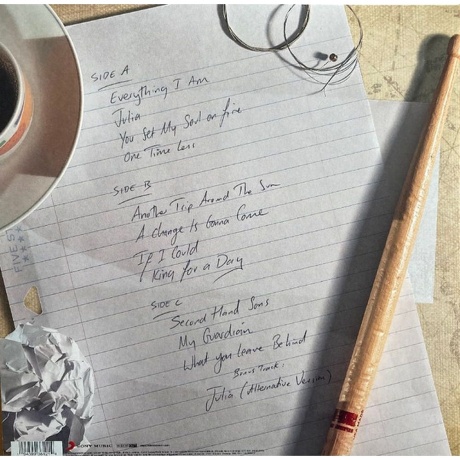 SIDE A
Everything I Am
Julia
You Set My Soul on fire
One Time Less
SIDE B
Another Trip Around The Sun
A change Is Gonna Come
If I Could
King for a Day
SIDE C
Second Hand Sons
My Guardian
What you Leave Behind
Bonus Track:
Julia (Alternative Version)
FIVE S
SONY MUSIC